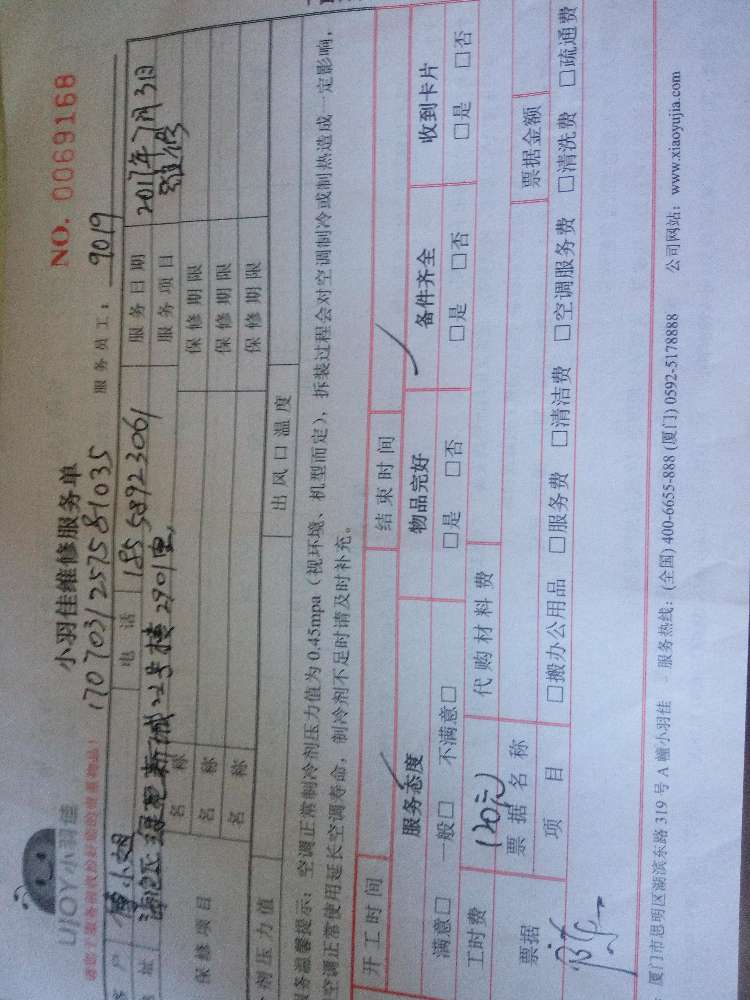 UJOY小羽佳
小羽佳维修服务单
NO. 0069168
请您于服务前收拾好您的贵重物品!
1707031257581035
服务员工： 9019
客 户
小姐
电 话
185 5892 3061
服务日期
2017年7月3日
地 址
新城22号楼2901室
服务项目
保修项目
名 称
保修期限
名 称
保修期限
名 称
保修期限
剂压力值
出风口温度
服务温馨提示：空调正常制冷剂压力值为 0.45mpa（视环境、机型而定），拆装过程会对空调制冷或制热造成一定影响，
空调正常使用延长空调寿命，制冷剂不足时请及时补充。
开工时间
结束时间
服务态度
物品完好
备件齐全
收到卡片
满意□ 一般□ 不满意□
□是 □否
□是 □否
□是 □否
工时费
120元
代购材料费
票据
票据名称
票据金额
项 目
□搬办公用品 □服务费 □清洁费 □空调服务费 □清洗费 □疏通费
厦门市思明区湖滨东路 319 号 A 幢小羽佳 服务热线：(全国) 400-6655-888 (厦门) 0592-5178888 公司网站：www.xiaoyujia.com